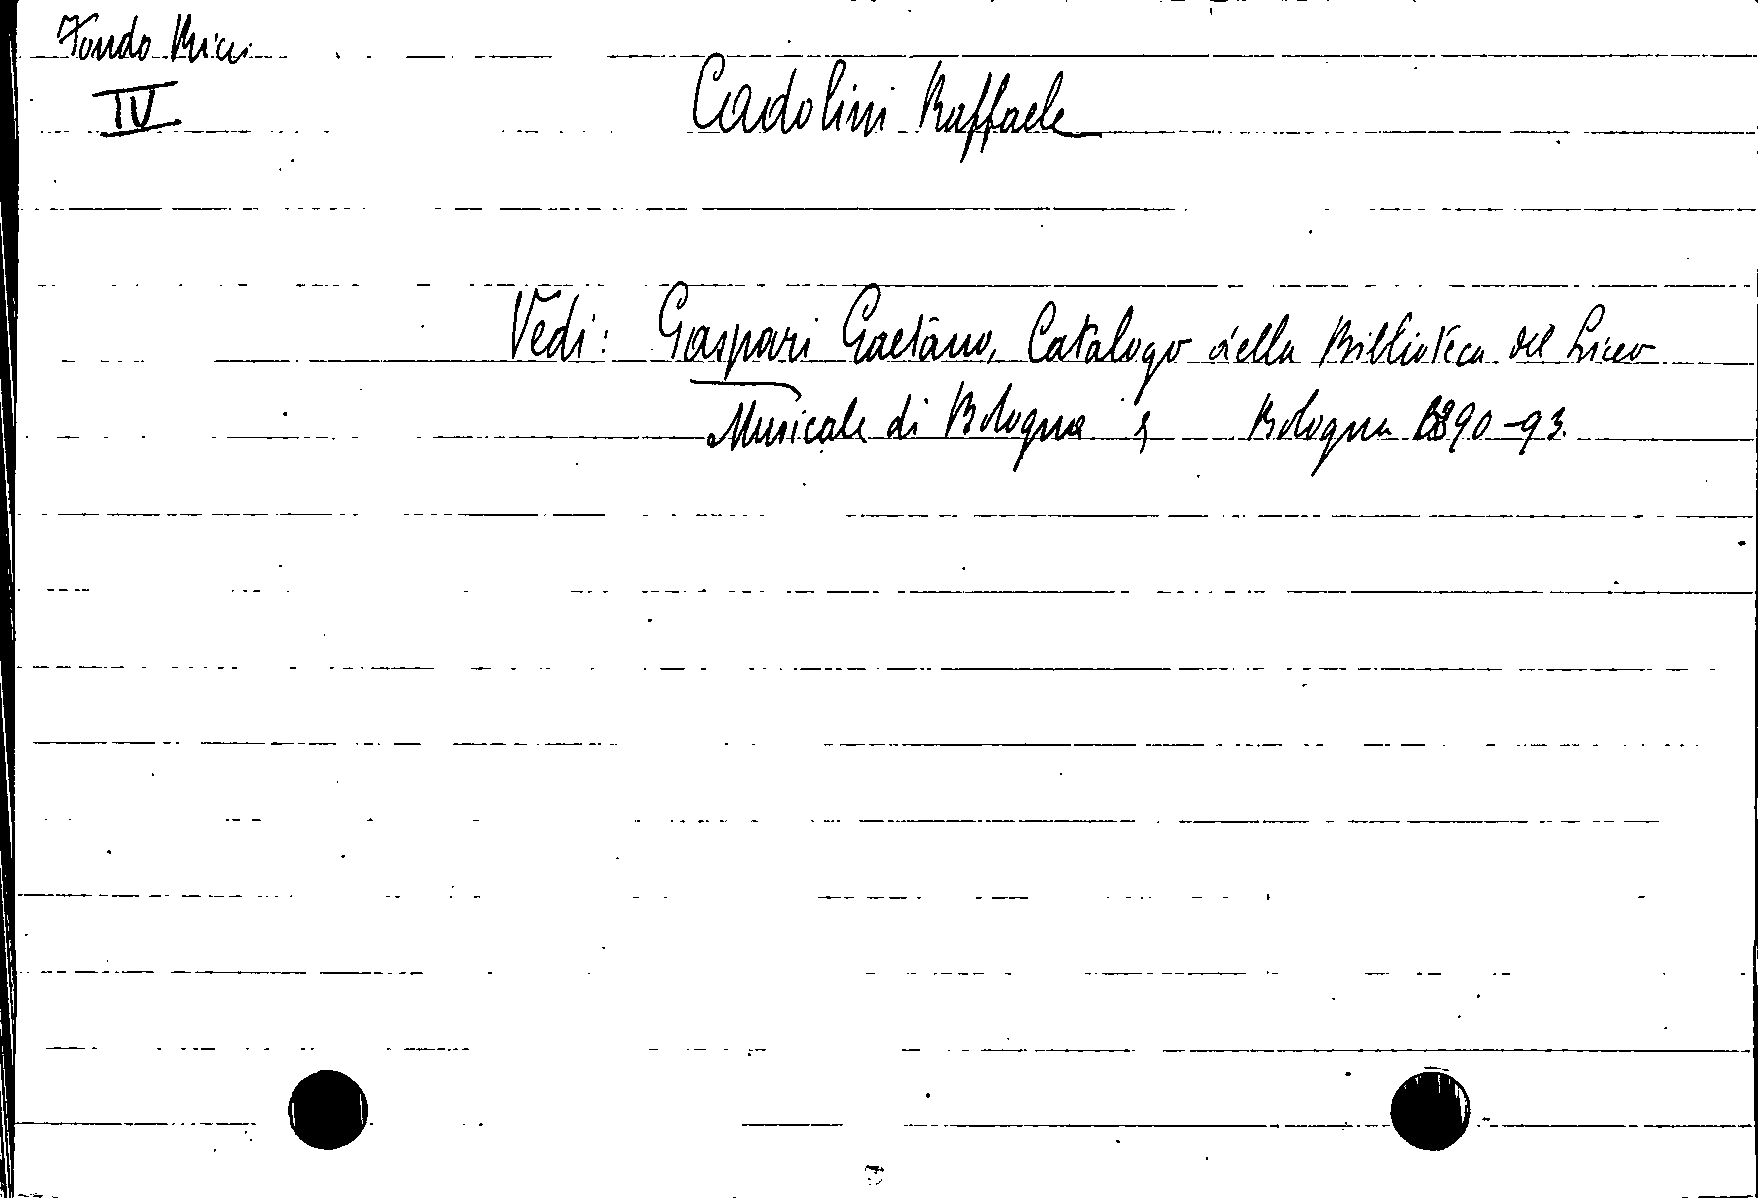 Fondo Ricci
IV
Cadolini Raffaele
Vedi: Gaspari Gaetano, Catalogo della Biblioteca del Liceo
Musicale di Bologna, Bologna 1890-93.